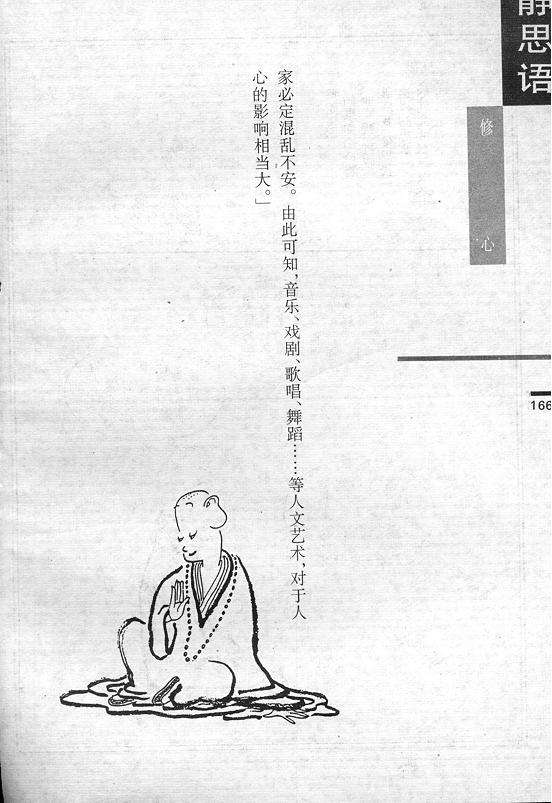 静思语
修心
家必定混乱不安。由此可知,音乐、戏剧、歌唱、舞蹈……等人文艺术,对于人
心的影响相当大。」
166